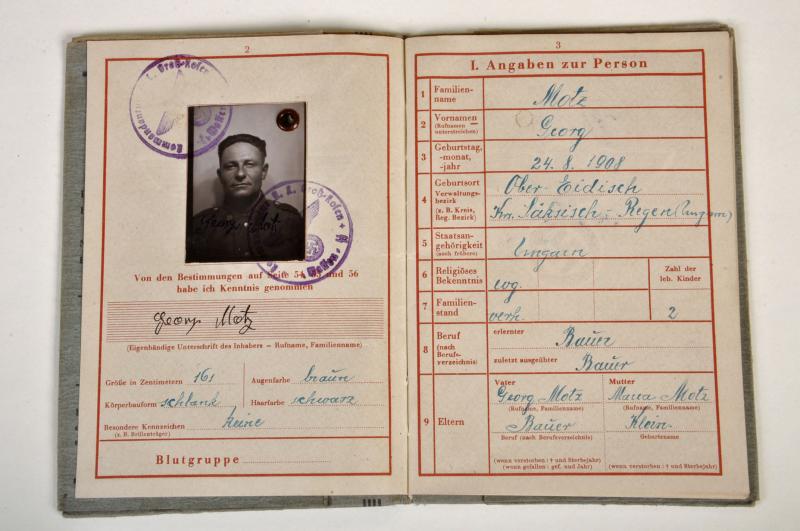 2
Georg Motz
Von den Bestimmungen auf Seite 54 55 und 56
habe ich Kenntnis genommen
Georg Motz
(Eigenhändige Unterschrift des Inhabers — Rufname, Familienname)
Größe in Zentimetern 161 Augenfarbe braun
Körperbauform schlank Haarfarbe schwarz
Besondere Kennzeichen keine
(z. B. Brillenträger)
Blutgruppe
3
I. Angaben zur Person
1 Familienname Motz
2 Vornamen (Rufnamen unterstreichen) Georg
3 Geburtstag, -monat, -jahr 24. 8. 1908
4 Geburtsort Ober-Eidisch
Verwaltungsbezirk (z. B. Kreis, Reg. Bezirk) Krs. Säksisch-Regen (Ungarn)
5 Staatsangehörigkeit (auch frühere) Ungarn
6 Religiöses Bekenntnis evg. Zahl der leb. Kinder
7 Familienstand verh. 2
8 Beruf (nach Berufsverzeichnis) erlernter Bauer
zuletzt ausgeübter Bauer
9 Eltern Vater Mutter
Georg Motz Maria Motz
(Rufname, Familienname) (Rufname, Familienname)
Bauer Klein
Beruf (nach Berufsverzeichnis) Geburtsname
(wenn verstorben: † und Sterbejahr) (wenn verstorben: † und Sterbejahr)
(wenn gefallen: gef. und Jahr)